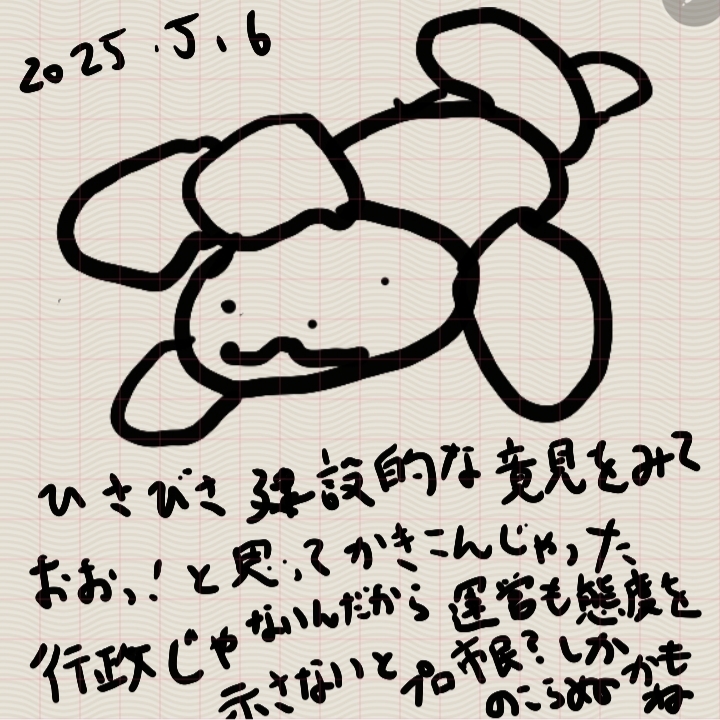 2025.5.6
ひさびさ建設的な意見をみて
おおっ!と思ってかきこんじゃった
行政じゃないんだから運営も態度を
示さないとプロ市民?しか
のこらぬかもね